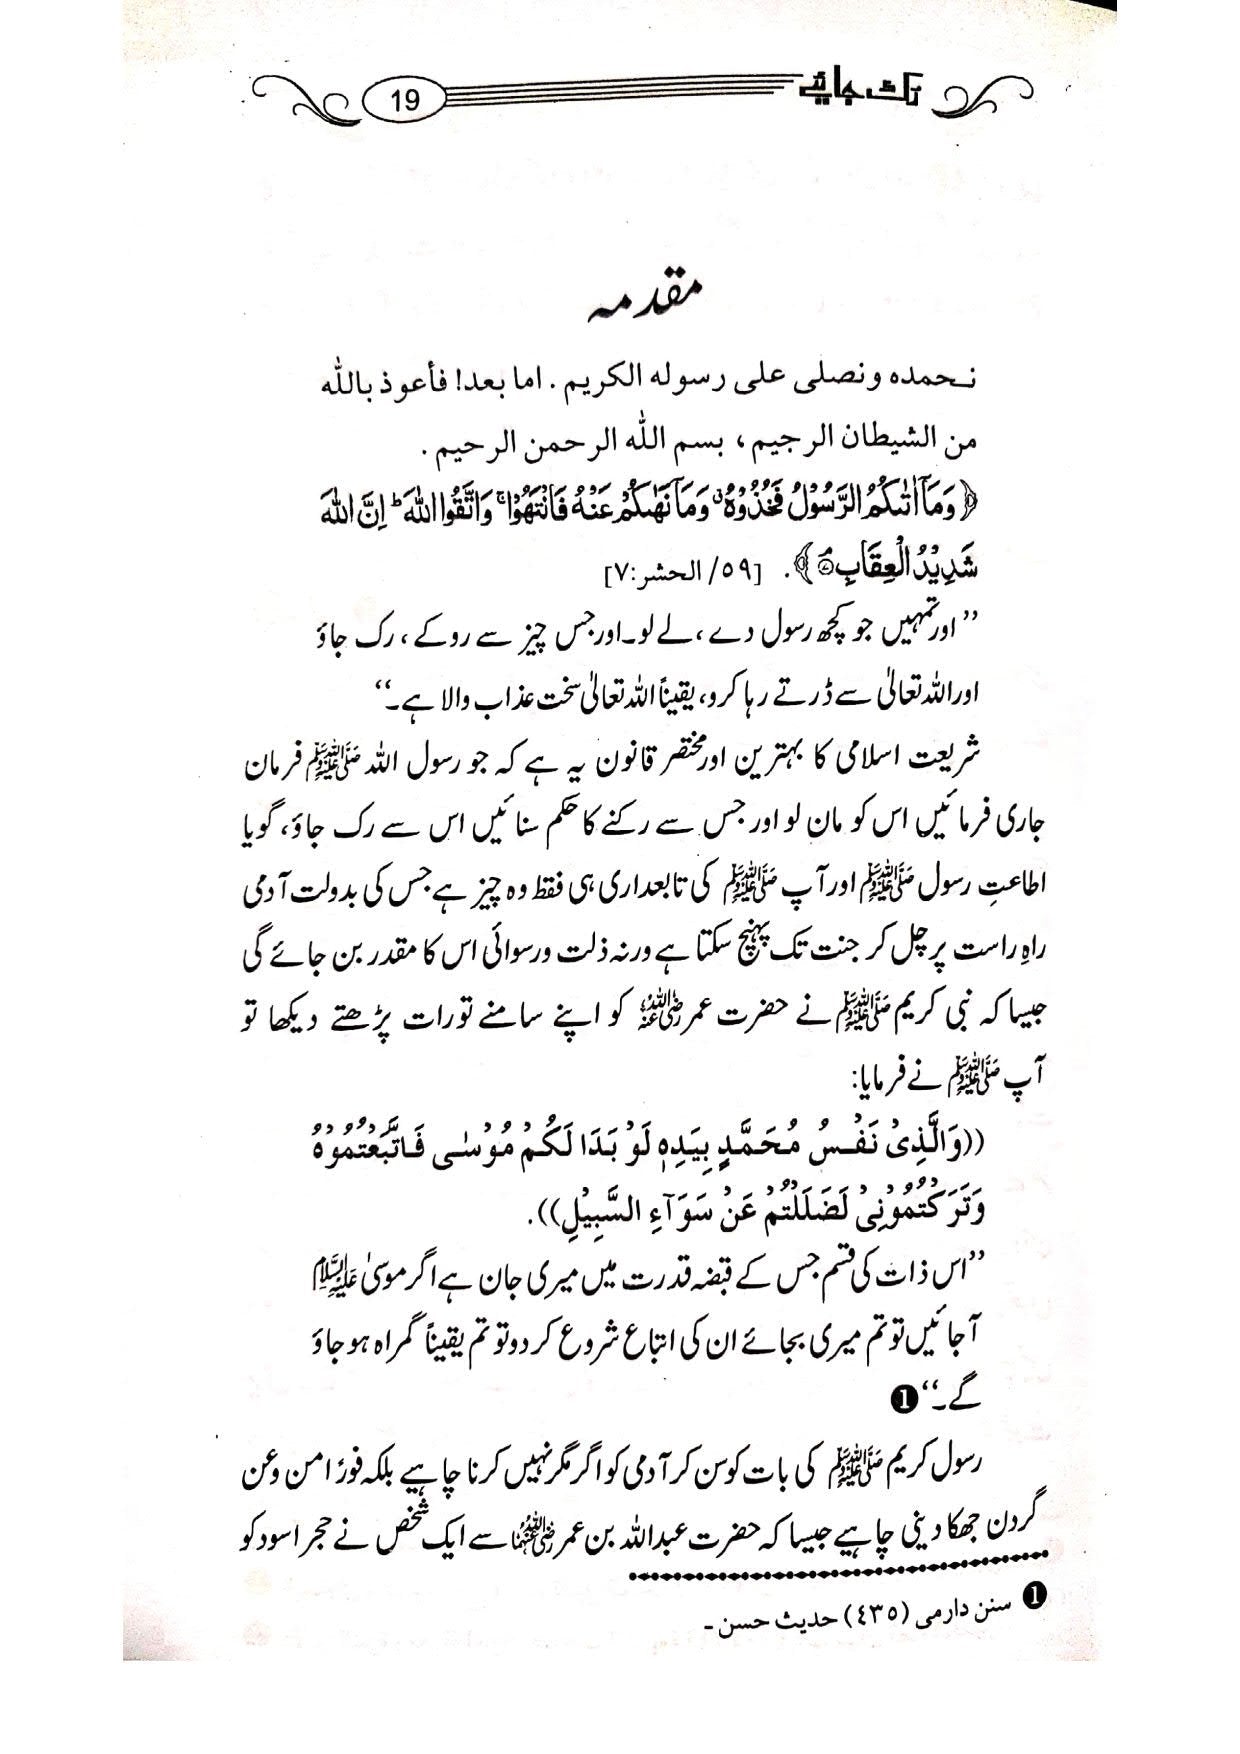 رُک جائیے
19
مقدمہ
نحمدہ ونصلی علی رسولہ الکریم . اما بعد! فأعوذ باللّٰہ
من الشیطان الرجیم، بسم اللّٰہ الرحمن الرحیم .
﴿وَمَآ اٰتٰىكُمُ الرَّسُوْلُ فَخُذُوْهُ ۚ وَمَا نَهٰىكُمْ عَنْهُ فَانْتَهُوْا ۚ وَاتَّقُوا اللّٰهَ ؕ اِنَّ اللّٰهَ
شَدِيْدُ الْعِقَابِ ۘ۷﴾. [٥٩/ الحشر:٧]
’’اور تمہیں جو کچھ رسول دے، لے لو۔ اور جس چیز سے روکے، رک جاؤ
اور اللہ تعالیٰ سے ڈرتے رہا کرو، یقیناً اللہ تعالیٰ سخت عذاب والا ہے۔‘‘
شریعت اسلامی کا بہترین اور مختصر قانون یہ ہے کہ جو رسول اللہ ﷺ فرمان
جاری فرمائیں اس کو مان لو اور جس سے رکنے کا حکم سنائیں اس سے رک جاؤ، گویا
اطاعتِ رسول ﷺ اور آپ ﷺ کی تابعداری ہی فقط وہ چیز ہے جس کی بدولت آدمی
راہِ راست پر چل کر جنت تک پہنچ سکتا ہے ورنہ ذلت ورسوائی اس کا مقدر بن جائے گی
جیسا کہ نبی کریم ﷺ نے حضرت عمر رضی اللہ عنہ کو اپنے سامنے تورات پڑھتے دیکھا تو
آپ ﷺ نے فرمایا:
((وَالَّذِيْ نَفْسُ مُحَمَّدٍ بِيَدِهٖ لَوْ بَدَا لَكُمْ مُوْسٰى فَاتَّبَعْتُمُوْهُ
وَتَرَكْتُمُوْنِيْ لَضَلَلْتُمْ عَنْ سَوَآءِ السَّبِيْلِ)).
’’اس ذات کی قسم جس کے قبضہ قدرت میں میری جان ہے اگر موسیٰ علیہ السلام
آجائیں تو تم میری بجائے ان کی اتباع شروع کردو تو تم یقیناً گمراہ ہو جاؤ
گے۔‘‘ ❶
رسول کریم ﷺ کی بات کو سن کر آدمی کو اگر مگر نہیں کرنا چاہیے بلکہ فوراً من وعن
گردن جھکا دینی چاہیے جیسا کہ حضرت عبداللہ بن عمر رضی اللہ عنہما سے ایک شخص نے حجر اسود کو
❶ سنن دارمی (٤٣٥) حدیث حسن۔